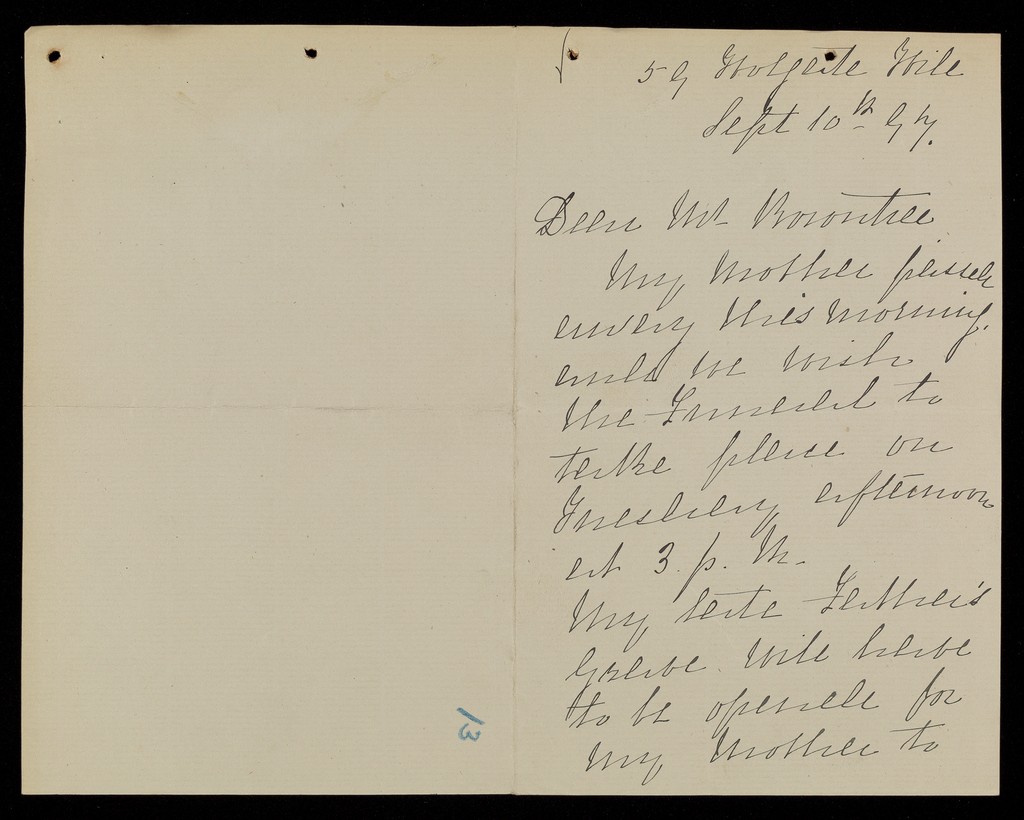 59 Holgate Hill
Sept 10th 97.
Dear Mr Rowntree
My Mother passed
away this morning.
and we wish
the Funeral to
take place on
Tuesday afternoon
at 3. p. M.
My late Father's
Grave will have
to be opened for
my Mother to
13